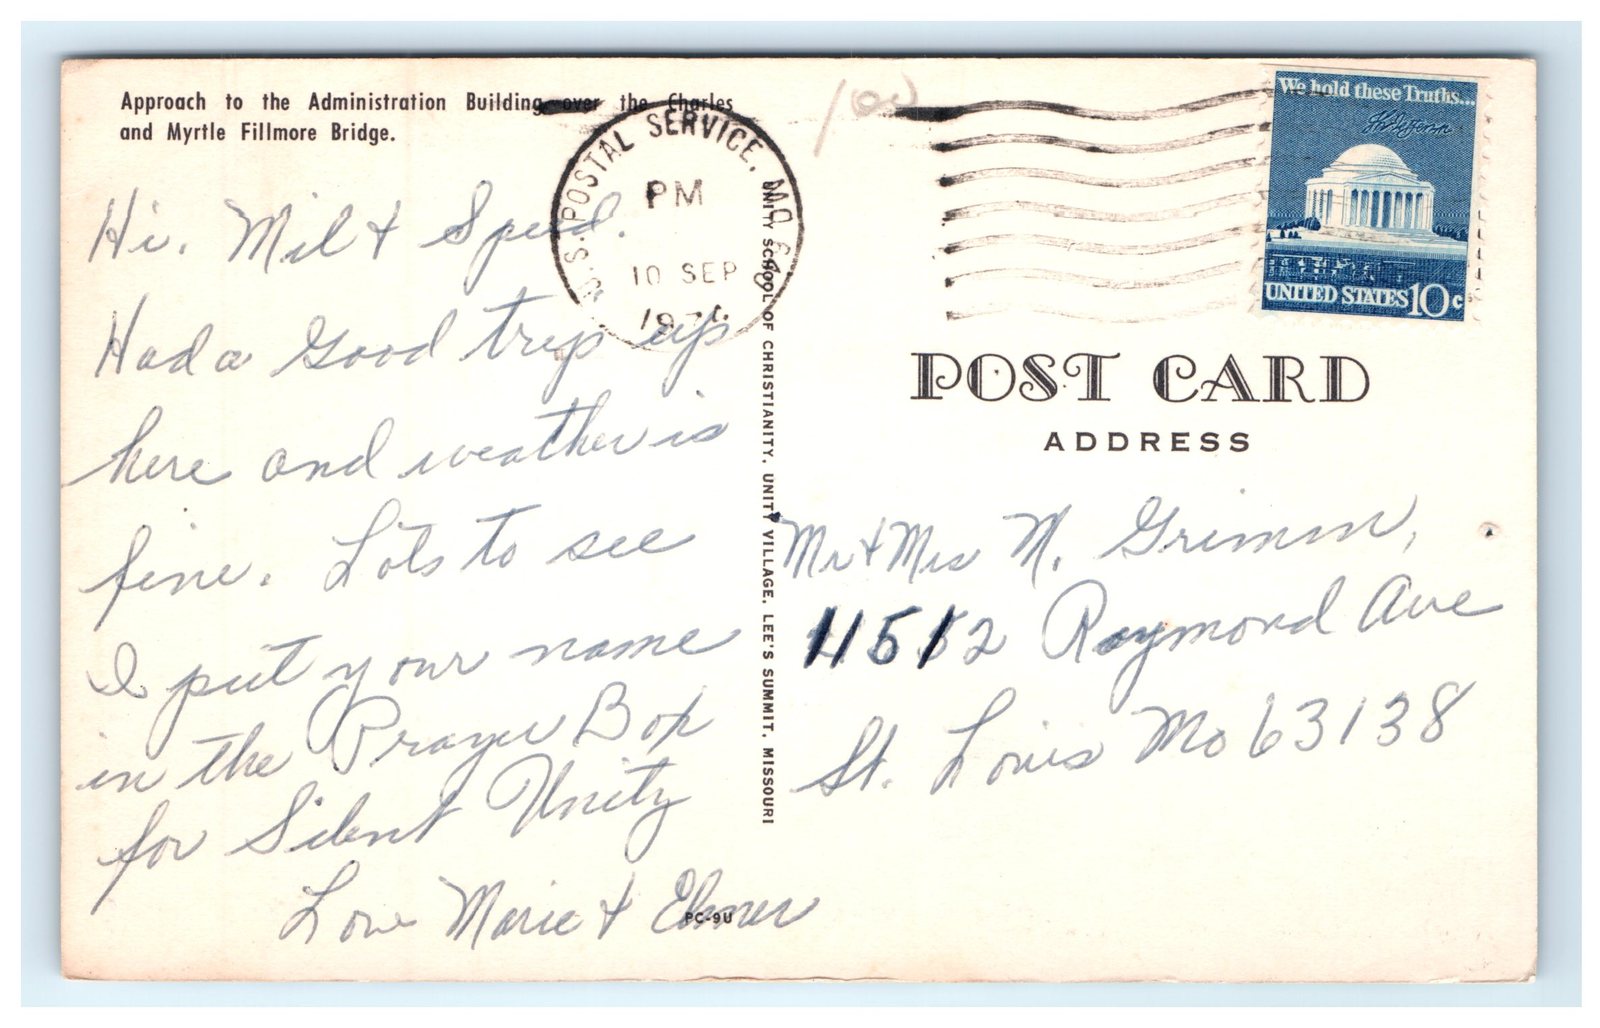 Approach to the Administration Building over the Charles
and Myrtle Fillmore Bridge.
Hi. Mil & Speed.
Had a Good trip up
here and weather is
fine. Lots to see
I put your name
in the Prayer Box
for Silent Unity
Love Marie & Elmer
PC-9U
U.S. POSTAL SERVICE, MO
PM
10 SEP
UNITY SCHOOL OF CHRISTIANITY, UNITY VILLAGE, LEE'S SUMMIT, MISSOURI
100
We hold these Truths...
UNITED STATES 10c
POST CARD
ADDRESS
Mr & Mrs M. Grimm,
11512 Raymond Ave
St. Louis Mo 63138